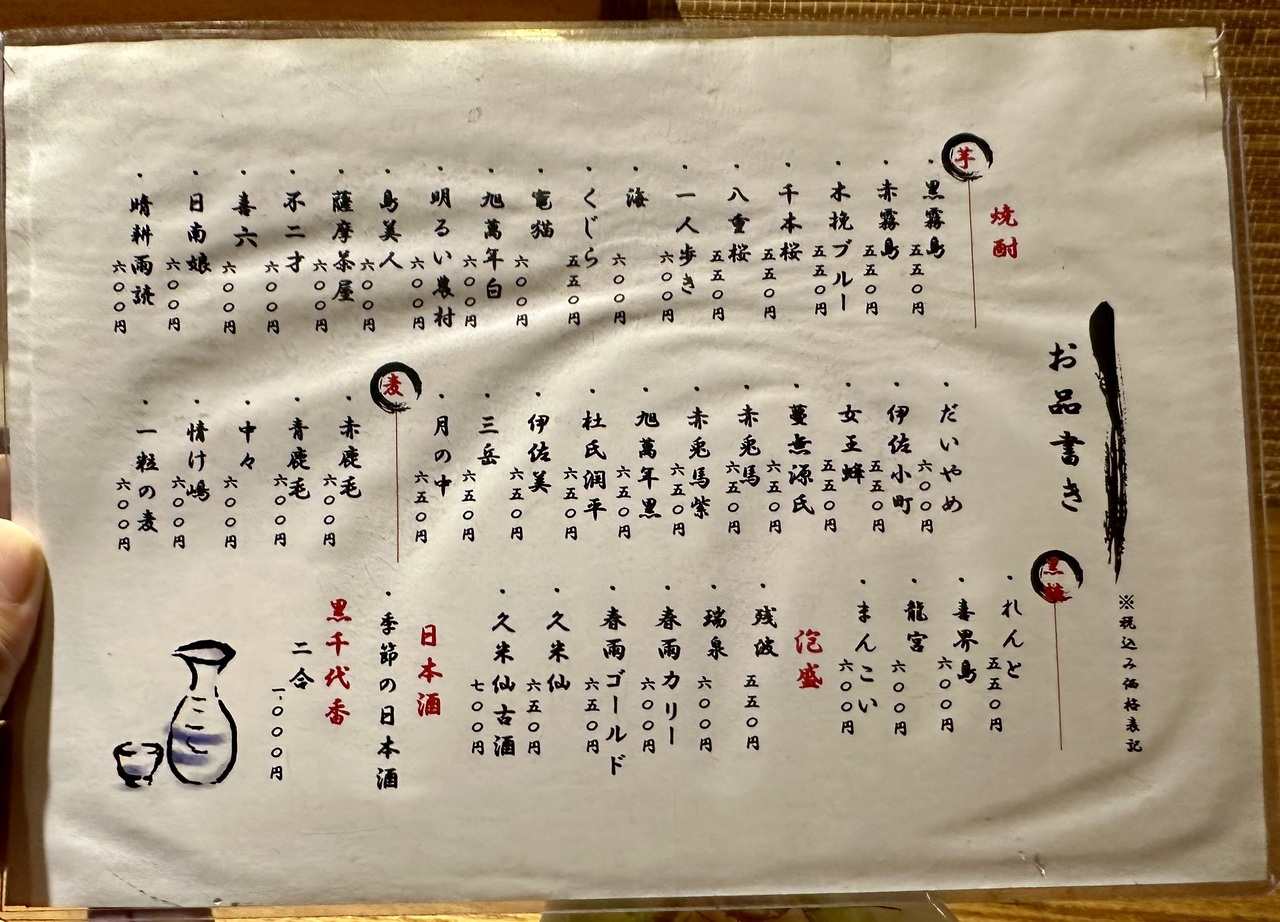 お品書き
※税込み価格表記
焼酎
芋
・黒霧島 五五〇円
・赤霧島 五五〇円
・木挽ブルー 五五〇円
・千本桜 五五〇円
・八重桜 五五〇円
・一人歩き 六〇〇円
・海 六〇〇円
・くじら 五五〇円
・竃猫 六〇〇円
・旭萬年白 六〇〇円
・明るい農村 六〇〇円
・島美人 六〇〇円
・薩摩茶屋 六〇〇円
・不二才 六〇〇円
・喜六 六〇〇円
・日南娘 六〇〇円
・晴耕雨読 六〇〇円
・だいやめ 六〇〇円
・伊佐小町 五五〇円
・女王蜂 五五〇円
・蔓無源氏 六五〇円
・赤兎馬 六五〇円
・赤兎馬紫 六五〇円
・旭萬年黒 六五〇円
・杜氏潤平 六五〇円
・伊佐美 六五〇円
・三岳 六五〇円
・月の中 六五〇円
麦
・赤鹿毛 六〇〇円
・青鹿毛 六〇〇円
・中々 六〇〇円
・情け嶋 六〇〇円
・一粒の麦 六〇〇円
黒糖
・れんと 五五〇円
・喜界島 六〇〇円
・龍宮 六〇〇円
・まんこい 六〇〇円
泡盛
・残波 五五〇円
・瑞泉 六〇〇円
・春雨カリー 六〇〇円
・春雨ゴールド 六五〇円
・久米仙 六五〇円
・久米仙古酒 七〇〇円
日本酒
・季節の日本酒
黒千代香
二合 一、〇〇〇円